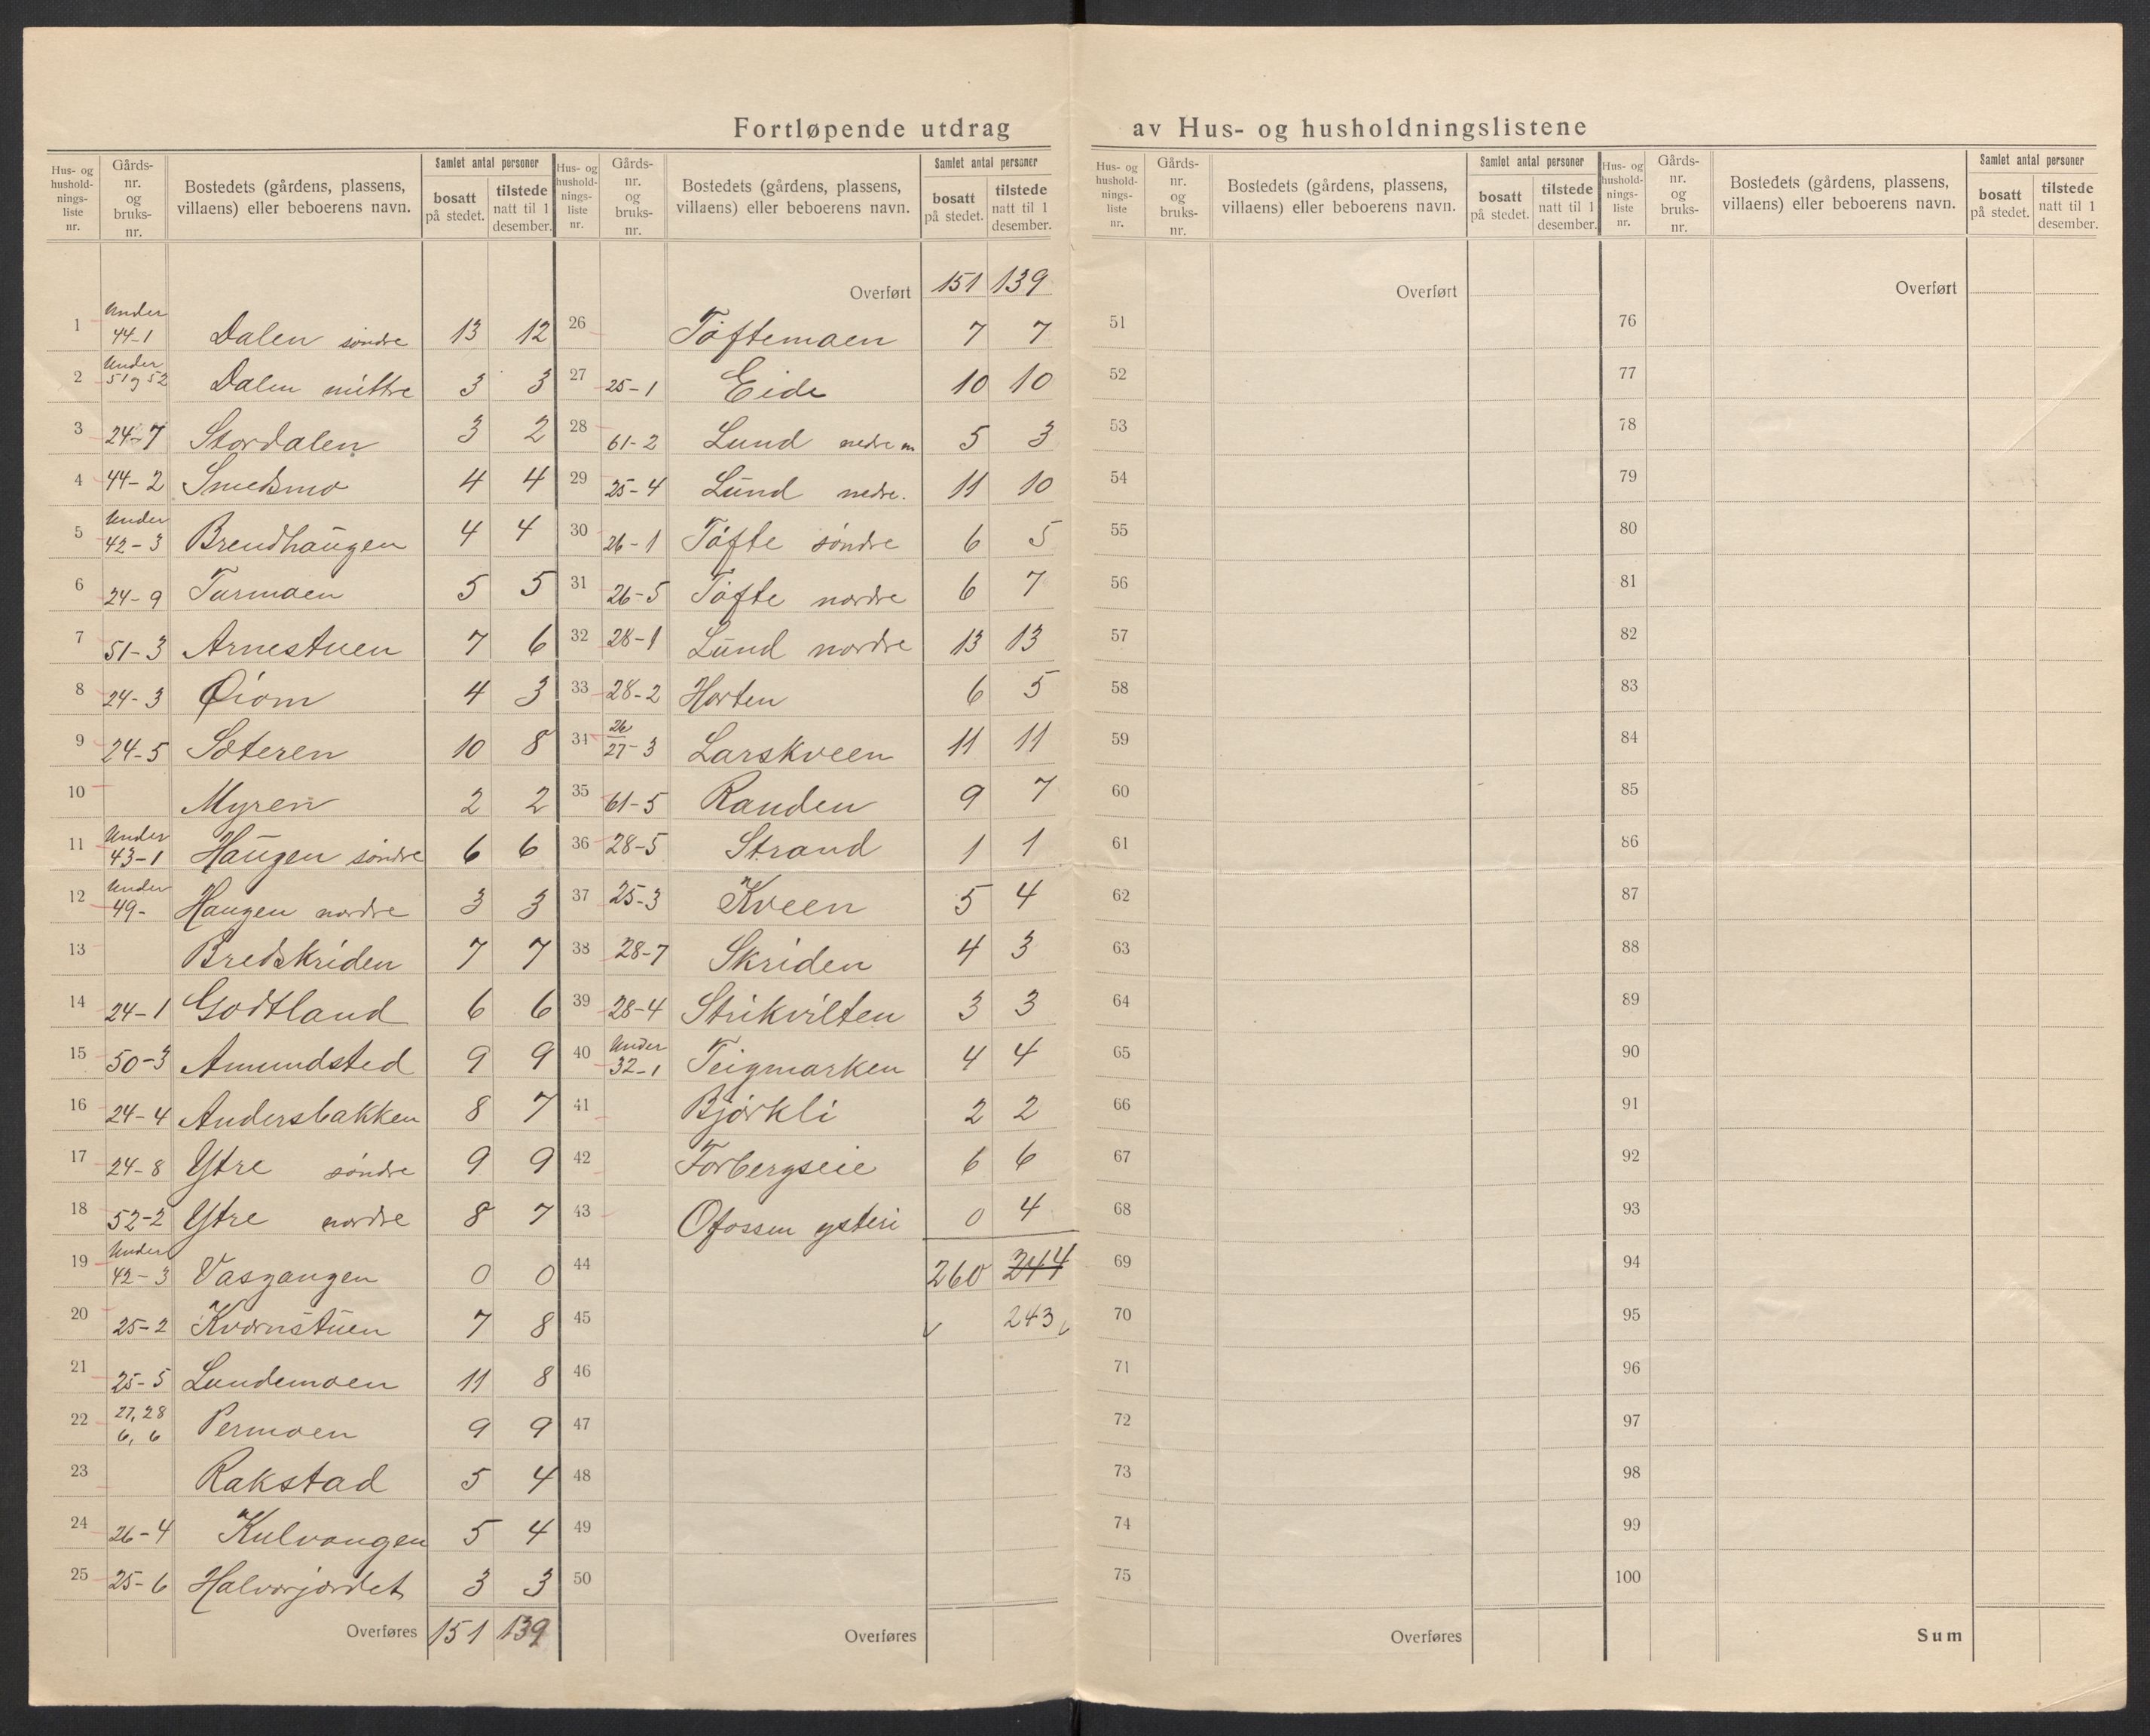 Fortløpende utdrag av Hus- og husholdningslistene
Hus- og hushold-nings-liste nr. | Gårds-nr. og bruks-nr. | Bostedets (gårdens, plassens, villaens) eller beboerens navn. | Samlet antal personer | bosatt på stedet. | tilstede natt til 1 desember.
1 Under 44-1 Dalen søndre 13 12
2 Under 51 og 52 Dalen mittre 3 3
3 24-7 Stordalen 3 2
4 44-2 Smedsmo 4 4
5 Under 42-3 Brendhaugen 4 4
6 24-9 Turmoen 5 5
7 51-3 Arnestuen 7 6
8 24-3 Øiom 4 3
9 24-5 Sæteren 10 8
10 Myren 2 2
11 Under 43-1 Haugen søndre 6 6
12 Under 49- Haugen nordre 3 3
13 Bredskriden 7 7
14 24-1 Godtland 6 6
15 50-3 Amundsted 9 9
16 24-4 Andersbakken 8 7
17 24-8 Ytre søndre 9 9
18 52-2 Ytre nordre 8 7
19 Under 42-3 Vasgangen 0 0
20 25-2 Kvernstuen 7 8
21 25-5 Lundemoen 11 8
22 27, 28 6, 6 Permoen 9 9
23 Rakstad 5 4
24 26-4 Kulvangen 5 4
25 25-6 Halvorjordet 3 3
Overføres 151 139
Hus- og hushold-nings-liste nr. | Gårds-nr. og bruks-nr. | Bostedets (gårdens, plassens, villaens) eller beboerens navn. | Samlet antal personer | bosatt på stedet. | tilstede natt til 1 desember.
Overført 151 139
26 Tøftemoen 7 7
27 25-1 Eide 10 10
28 61-2 Lund nedre m 5 3
29 25-4 Lund nedre. 11 10
30 26-1 Tøfte søndre 6 5
31 26-5 Tøfte nordre 6 7
32 28-1 Lund nordre 13 13
33 28-2 Horten 6 5
34 26 27-3 Larskveen 11 11
35 61-5 Randen 9 7
36 28-5 Strand 1 1
37 25-3 Kveen 5 4
38 28-7 Skriden 4 3
39 28-4 Strikvilten 3 3
40 Under 32-1 Teigmarken 4 4
41 Bjørkli 2 2
42 Forbergseie 6 6
43 Ofossen ysteri 0 4
44 260 244
45 243
46
47
48
49
50
Overføres
Hus- og hushold-nings-liste nr. | Gårds-nr. og bruks-nr. | Bostedets (gårdens, plassens, villaens) eller beboerens navn. | Samlet antal personer | bosatt på stedet. | tilstede natt til 1 desember.
Overført
51
52
53
54
55
56
57
58
59
60
61
62
63
64
65
66
67
68
69
70
71
72
73
74
75
Overføres
Hus- og hushold-nings-liste nr. | Gårds-nr. og bruks-nr. | Bostedets (gårdens, plassens, villaens) eller beboerens navn. | Samlet antal personer | bosatt på stedet. | tilstede natt til 1 desember.
Overført
76
77
78
79
80
81
82
83
84
85
86
87
88
89
90
91
92
93
94
95
96
97
98
99
100
Sum